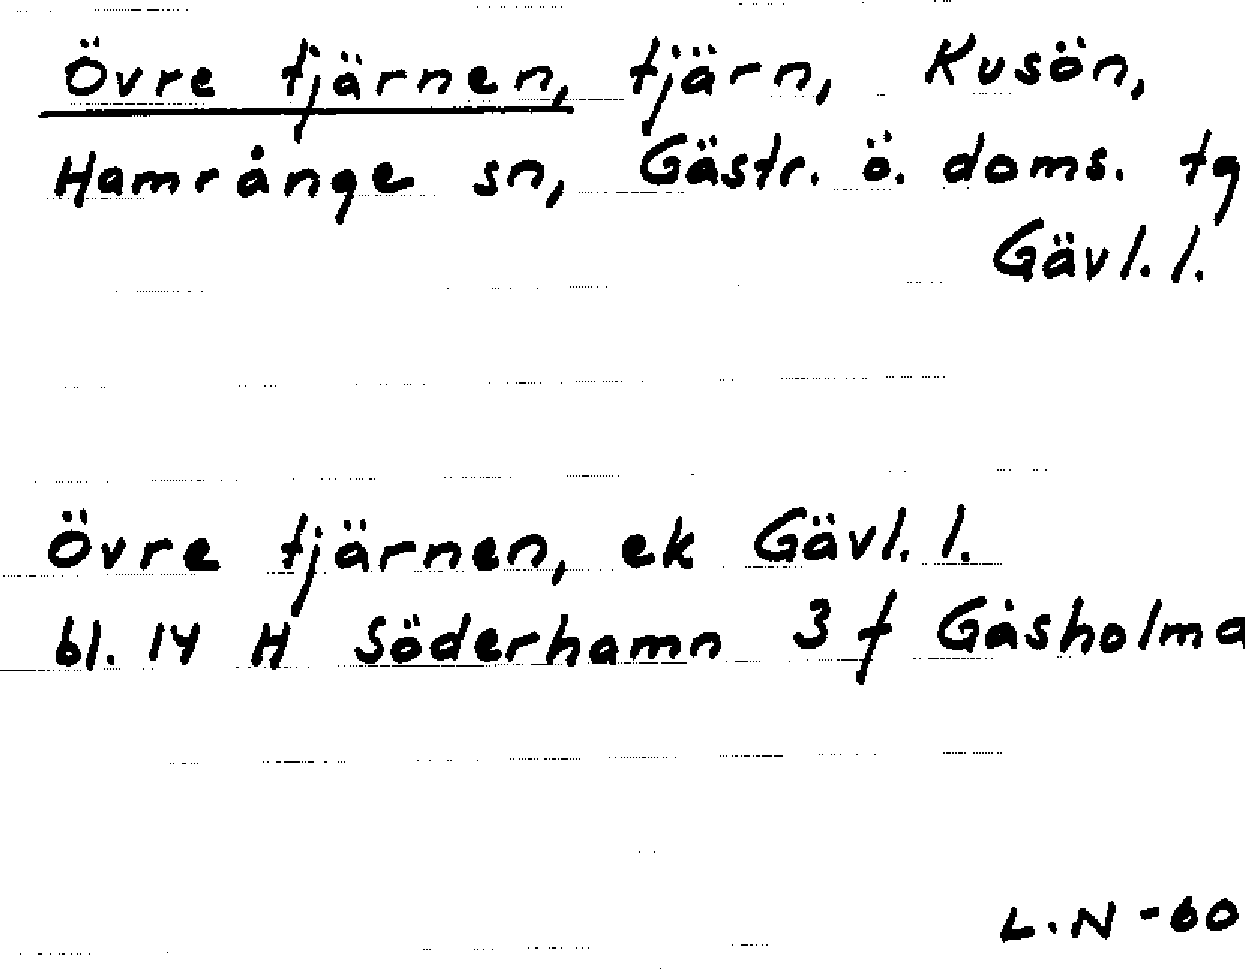 Övre tjärnen, tjärn, Kusön,
Hamrånge sn, Gästr. ö. doms. tg
Gävl. l.
Övre tjärnen, ek Gävl. l.
bl. 14 H Söderhamn 3 f Gåsholma
L.N -60